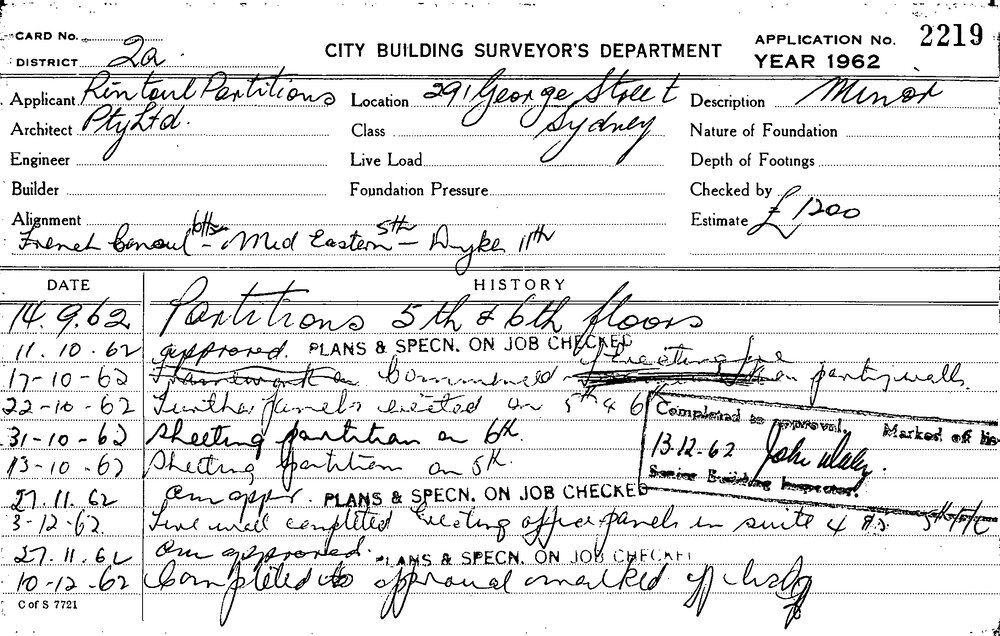 CARD No.
DISTRICT 2a
CITY BUILDING SURVEYOR'S DEPARTMENT
APPLICATION No. 2219
YEAR 1962
Applicant Rintoul Partitions
Location 291 George Street
Description Minor
Architect Pty Ltd.
Class Sydney
Nature of Foundation
Engineer
Live Load
Depth of Footings
Builder
Foundation Pressure
Checked by
Alignment
Estimate £1200
French Consul 6th - Mid Eastern 5th - Dykes 11th
DATE HISTORY
14.9.62 Partitions 5th & 6th floors
11.10.62 approved. PLANS & SPECN. ON JOB CHECKED
17-10-62 Framework on commenced party walls.
22-10-62 Further panels erected on 5th & 6
Completed to approval. Marked off
31-10-62 Sheeting partition on 6th.
13.12.62 John
13-10-62 Sheeting partition on 5th.
Senior Building Inspector.
27.11.62 am appr. PLANS & SPECN. ON JOB CHECKED
3-12-62. wall completed Erecting office panels in suite 4
27.11.62 am approved. PLANS & SPECN. ON JOB CHECKED
10-12-62 Completed to approval marked off
C of S 7721